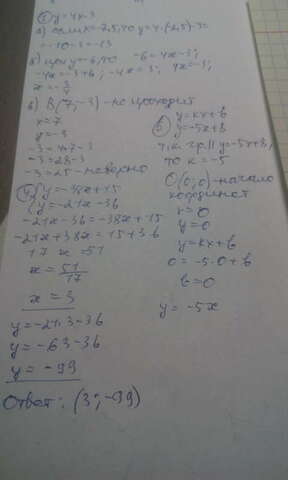 y=4x-3
а) если x=-2,5, то y=4·(-2,5)-3=
=-10-3=-13
б) при y=-6, то -6=4x-3;
-4x=-3+6; -4x=3; 4x=-3;
x=-3/4
в) B(7;-3)-не проходит
x=7
y=-3
-3=4·7-3
-3=28-3
-3=25-неверно
④ {y=-38x+15
y=-21x-36
-21x-36=-38x+15
-21x+38x=15+36
17x=51
x=51/17
x=3
y=-21·3-36
y=-63-36
y=-99
Ответ: (3;-99)
y=kx+b
y=-5x+8
т.к. гр. || y=-5x+8,
то k=-5
O(0;0)-начало
координат
x=0
y=0
y=kx+b
0=-5·0+b
b=0
y=-5x